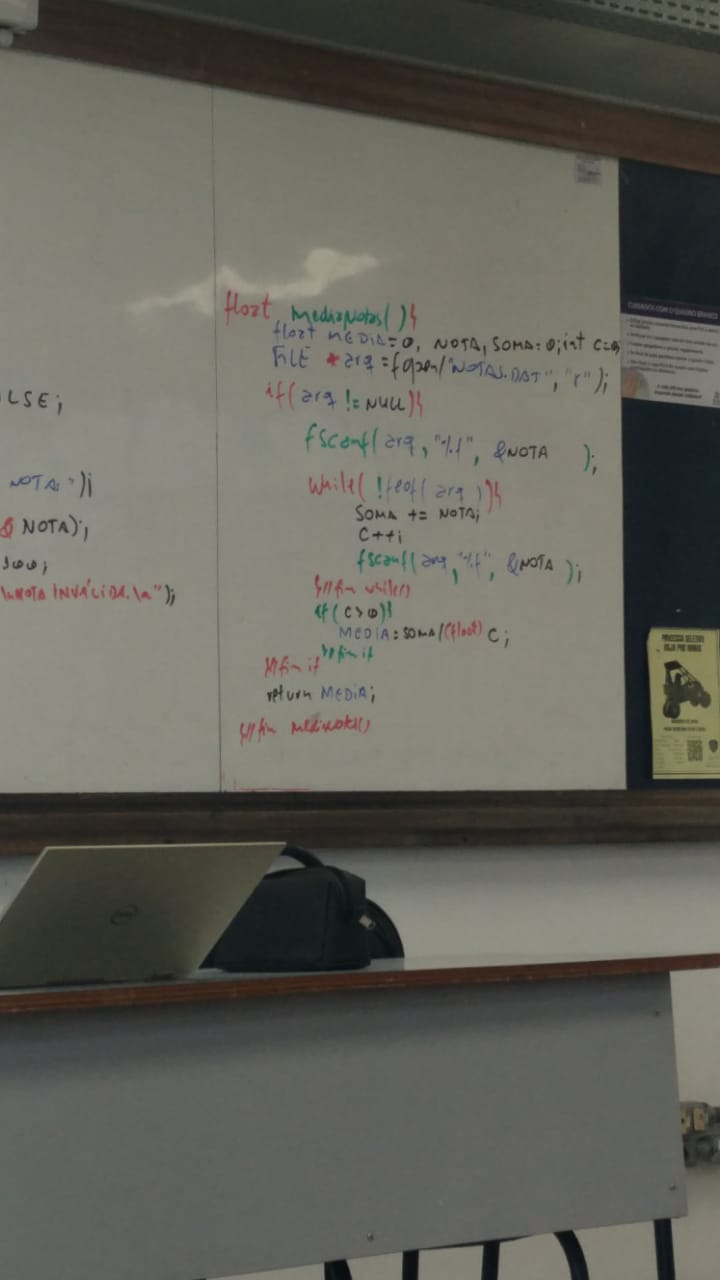 LSE;
NOTA: ");
& NOTA);
NOTA INVÁLIDA.\a");
float MediaNotas(){
float MEDIA=0, NOTA, SOMA=0; int C=0;
FILE *arq = fopen("NOTAS.DAT", "r");
if( arq != NULL){
fscanf( arq, "%f", &NOTA );
while( !feof( arq )){
SOMA += NOTA;
C++;
fscanf( arq, "%f", &NOTA );
}//fim while()
if( C>0){
MEDIA=SOMA/(float) C;
}//fim if
}//fim if
return MEDIA;
}//fim MediaNotas()
CUIDADOS COM O QUADRO BRANCO
PROCESSO SELETIVO
BAJA PRO MINAS
DELL